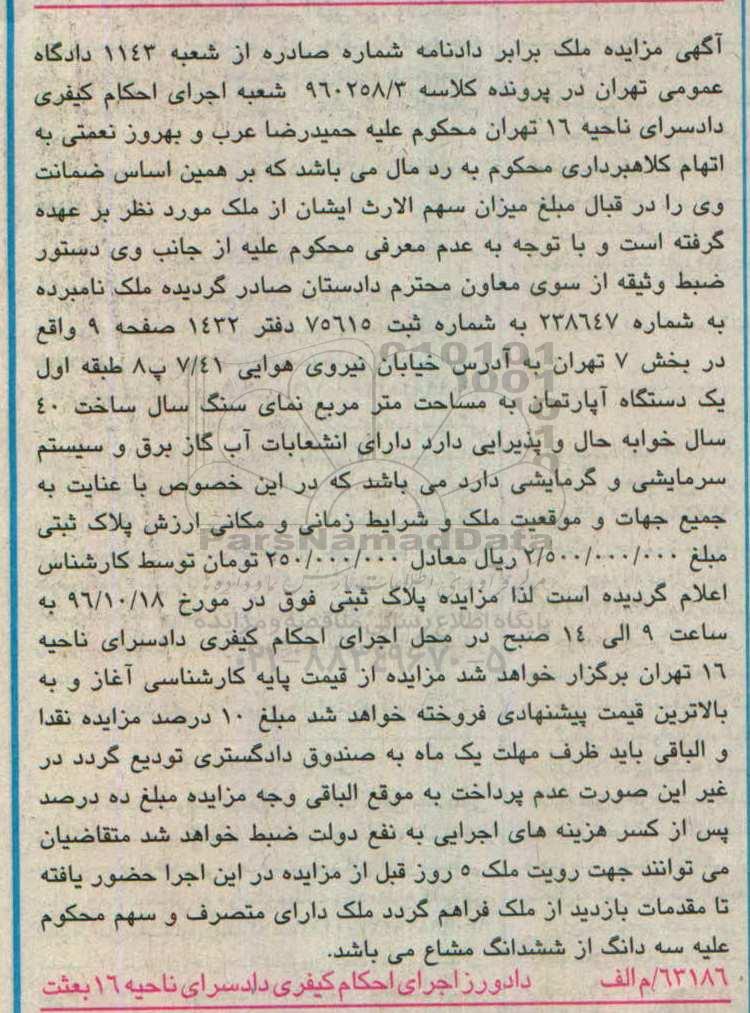 آگهی مزایده ملک برابر دادنامه شماره صادره از شعبه ۱۱٤۳ دادگاه
عمومی تهران در پرونده کلاسه ۹٦۰۲٥۸/۳ شعبه اجرای احکام کیفری
دادسرای ناحیه ۱٦ تهران محکوم علیه حمیدرضا عرب و بهروز نعمتی به
اتهام کلاهبرداری محکوم به رد مال می باشد که بر همین اساس ضمانت
وی را در قبال مبلغ میزان سهم الارث ایشان از ملک مورد نظر بر عهده
گرفته است و با توجه به عدم معرفی محکوم علیه از جانب وی دستور
ضبط وثیقه از سوی معاون محترم دادستان صادر گردیده ملک نامبرده
به شماره ۲۳۸٦٤۷ به شماره ثبت ۷٥٦۱٥ دفتر ۱٤۳۲ صفحه ۹ واقع
در بخش ۷ تهران به آدرس خیابان نیروی هوایی ۷/٤۱ پ۸ طبقه اول
یک دستگاه آپارتمان به مساحت متر مربع نمای سنگ سال ساخت ٤۰
سال خوابه حال و پذیرایی دارد دارای انشعابات آب گاز برق و سیستم
سرمایشی و گرمایشی دارد می باشد که در این خصوص با عنایت به
جمیع جهات و موقعیت ملک و شرایط زمانی و مکانی ارزش پلاک ثبتی
مبلغ ۲/٥۰۰/۰۰۰/۰۰۰ ریال معادل ۲٥۰/۰۰۰/۰۰۰ تومان توسط کارشناس
اعلام گردیده است لذا مزایده پلاک ثبتی فوق در مورخ ۹٦/۱۰/۱۸ به
ساعت ۹ الی ۱٤ صبح در محل اجرای احکام کیفری دادسرای ناحیه
۱٦ تهران برگزار خواهد شد مزایده از قیمت پایه کارشناسی آغاز و به
بالاترین قیمت پیشنهادی فروخته خواهد شد مبلغ ۱۰ درصد مزایده نقدا
و الباقی باید ظرف مهلت یک ماه به صندوق دادگستری تودیع گردد در
غیر این صورت عدم پرداخت به موقع الباقی وجه مزایده مبلغ ده درصد
پس از کسر هزینه های اجرایی به نفع دولت ضبط خواهد شد متقاضیان
می توانند جهت رویت ملک ٥ روز قبل از مزایده در این اجرا حضور یافته
تا مقدمات بازدید از ملک فراهم گردد ملک دارای متصرف و سهم محکوم
علیه سه دانگ از ششدانگ مشاع می باشد.
٦۳۱۸٦/م الف دادورز اجرای احکام کیفری دادسرای ناحیه ۱٦ بعثت
ParsNamadData
پایگاه اطلاع رسانی مناقصه و مزایده